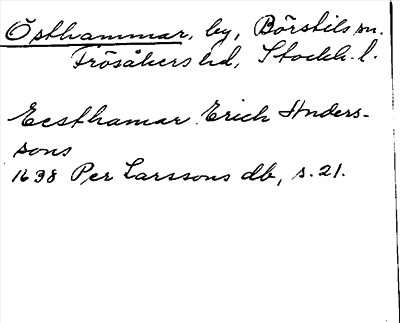 Östhammar, by, Börstils sn.
Frösåkers hd, Stockh. l.
Eesthamar Erich Anders-
sons
1638 Per Larssons db, s. 21.